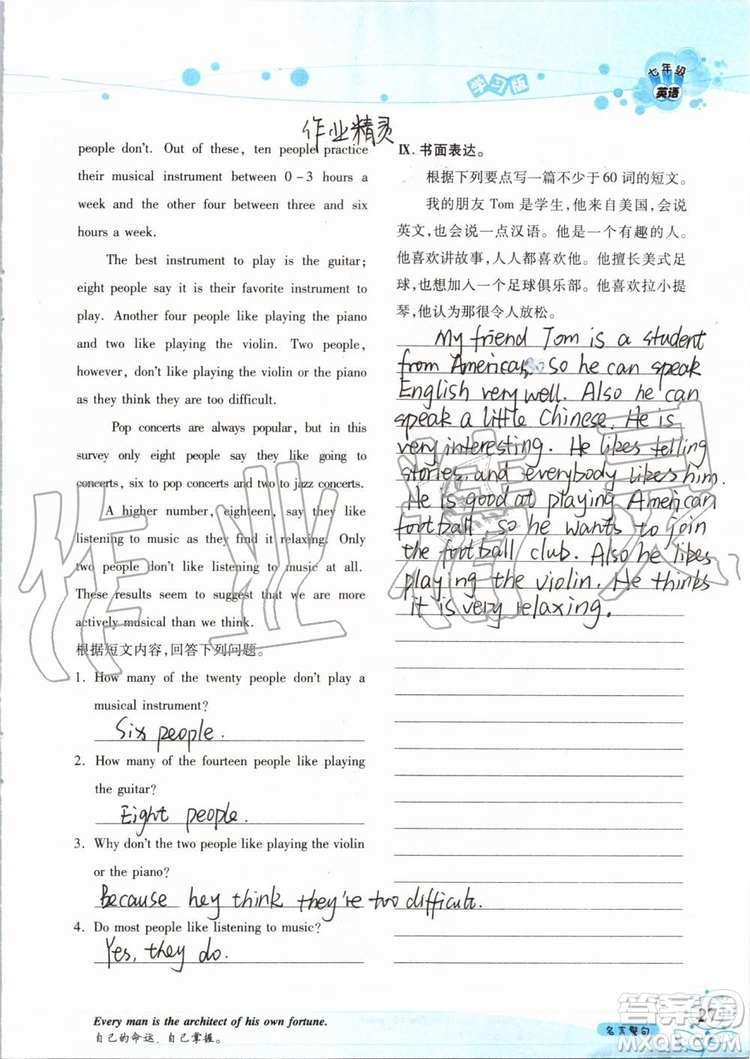 七年级
英语
学习版
作业精灵
people don't. Out of these, ten people practice
their musical instrument between 0-3 hours a
week and the other four between three and six
hours a week.
The best instrument to play is the guitar;
eight people say it is their favorite instrument to
play. Another four people like playing the piano
and two like playing the violin. Two people,
however, don't like playing the violin or the piano
as they think they are too difficult.
Pop concerts are always popular, but in this
survey only eight people say they like going to
concerts, six to pop concerts and two to jazz concerts.
A higher number, eighteen, say they like
listening to music as they find it relaxing. Only
two people don't like listening to music at all.
These results seem to suggest that we are more
actively musical than we think.
根据短文内容,回答下列问题。
1. How many of the twenty people don't play a
musical instrument?
Six people.
2. How many of the fourteen people like playing
the guitar?
Eight people.
3. Why don't the two people like playing the violin
or the piano?
Because hey think they're too difficulc.
4. Do most people like listening to music?
Yes, they do.
Ⅸ. 书面表达。
根据下列要点写一篇不少于 60 词的短文。
我的朋友 Tom 是学生,他来自美国,会说
英文,也会说一点汉语。他是一个有趣的人。
他喜欢讲故事,人人都喜欢他。他擅长美式足
球,也想加入一个足球俱乐部。他喜欢拉小提
琴,他认为那很令人放松。
My friend Tom is a student
from America. So he can speak
English very well. Also he can
speak a little Chinese. He is
very interesting. He likes telling
stories, and everybody likes him.
He is good at playing American
football so he wants to join
the football club. Also he likes
playing the violin. He thinks
it is very relaxing.
作业精灵
Every man is the architect of his own fortune.
自己的命运,自己掌握。
名言警句
27
答案圈
MXQE.COM